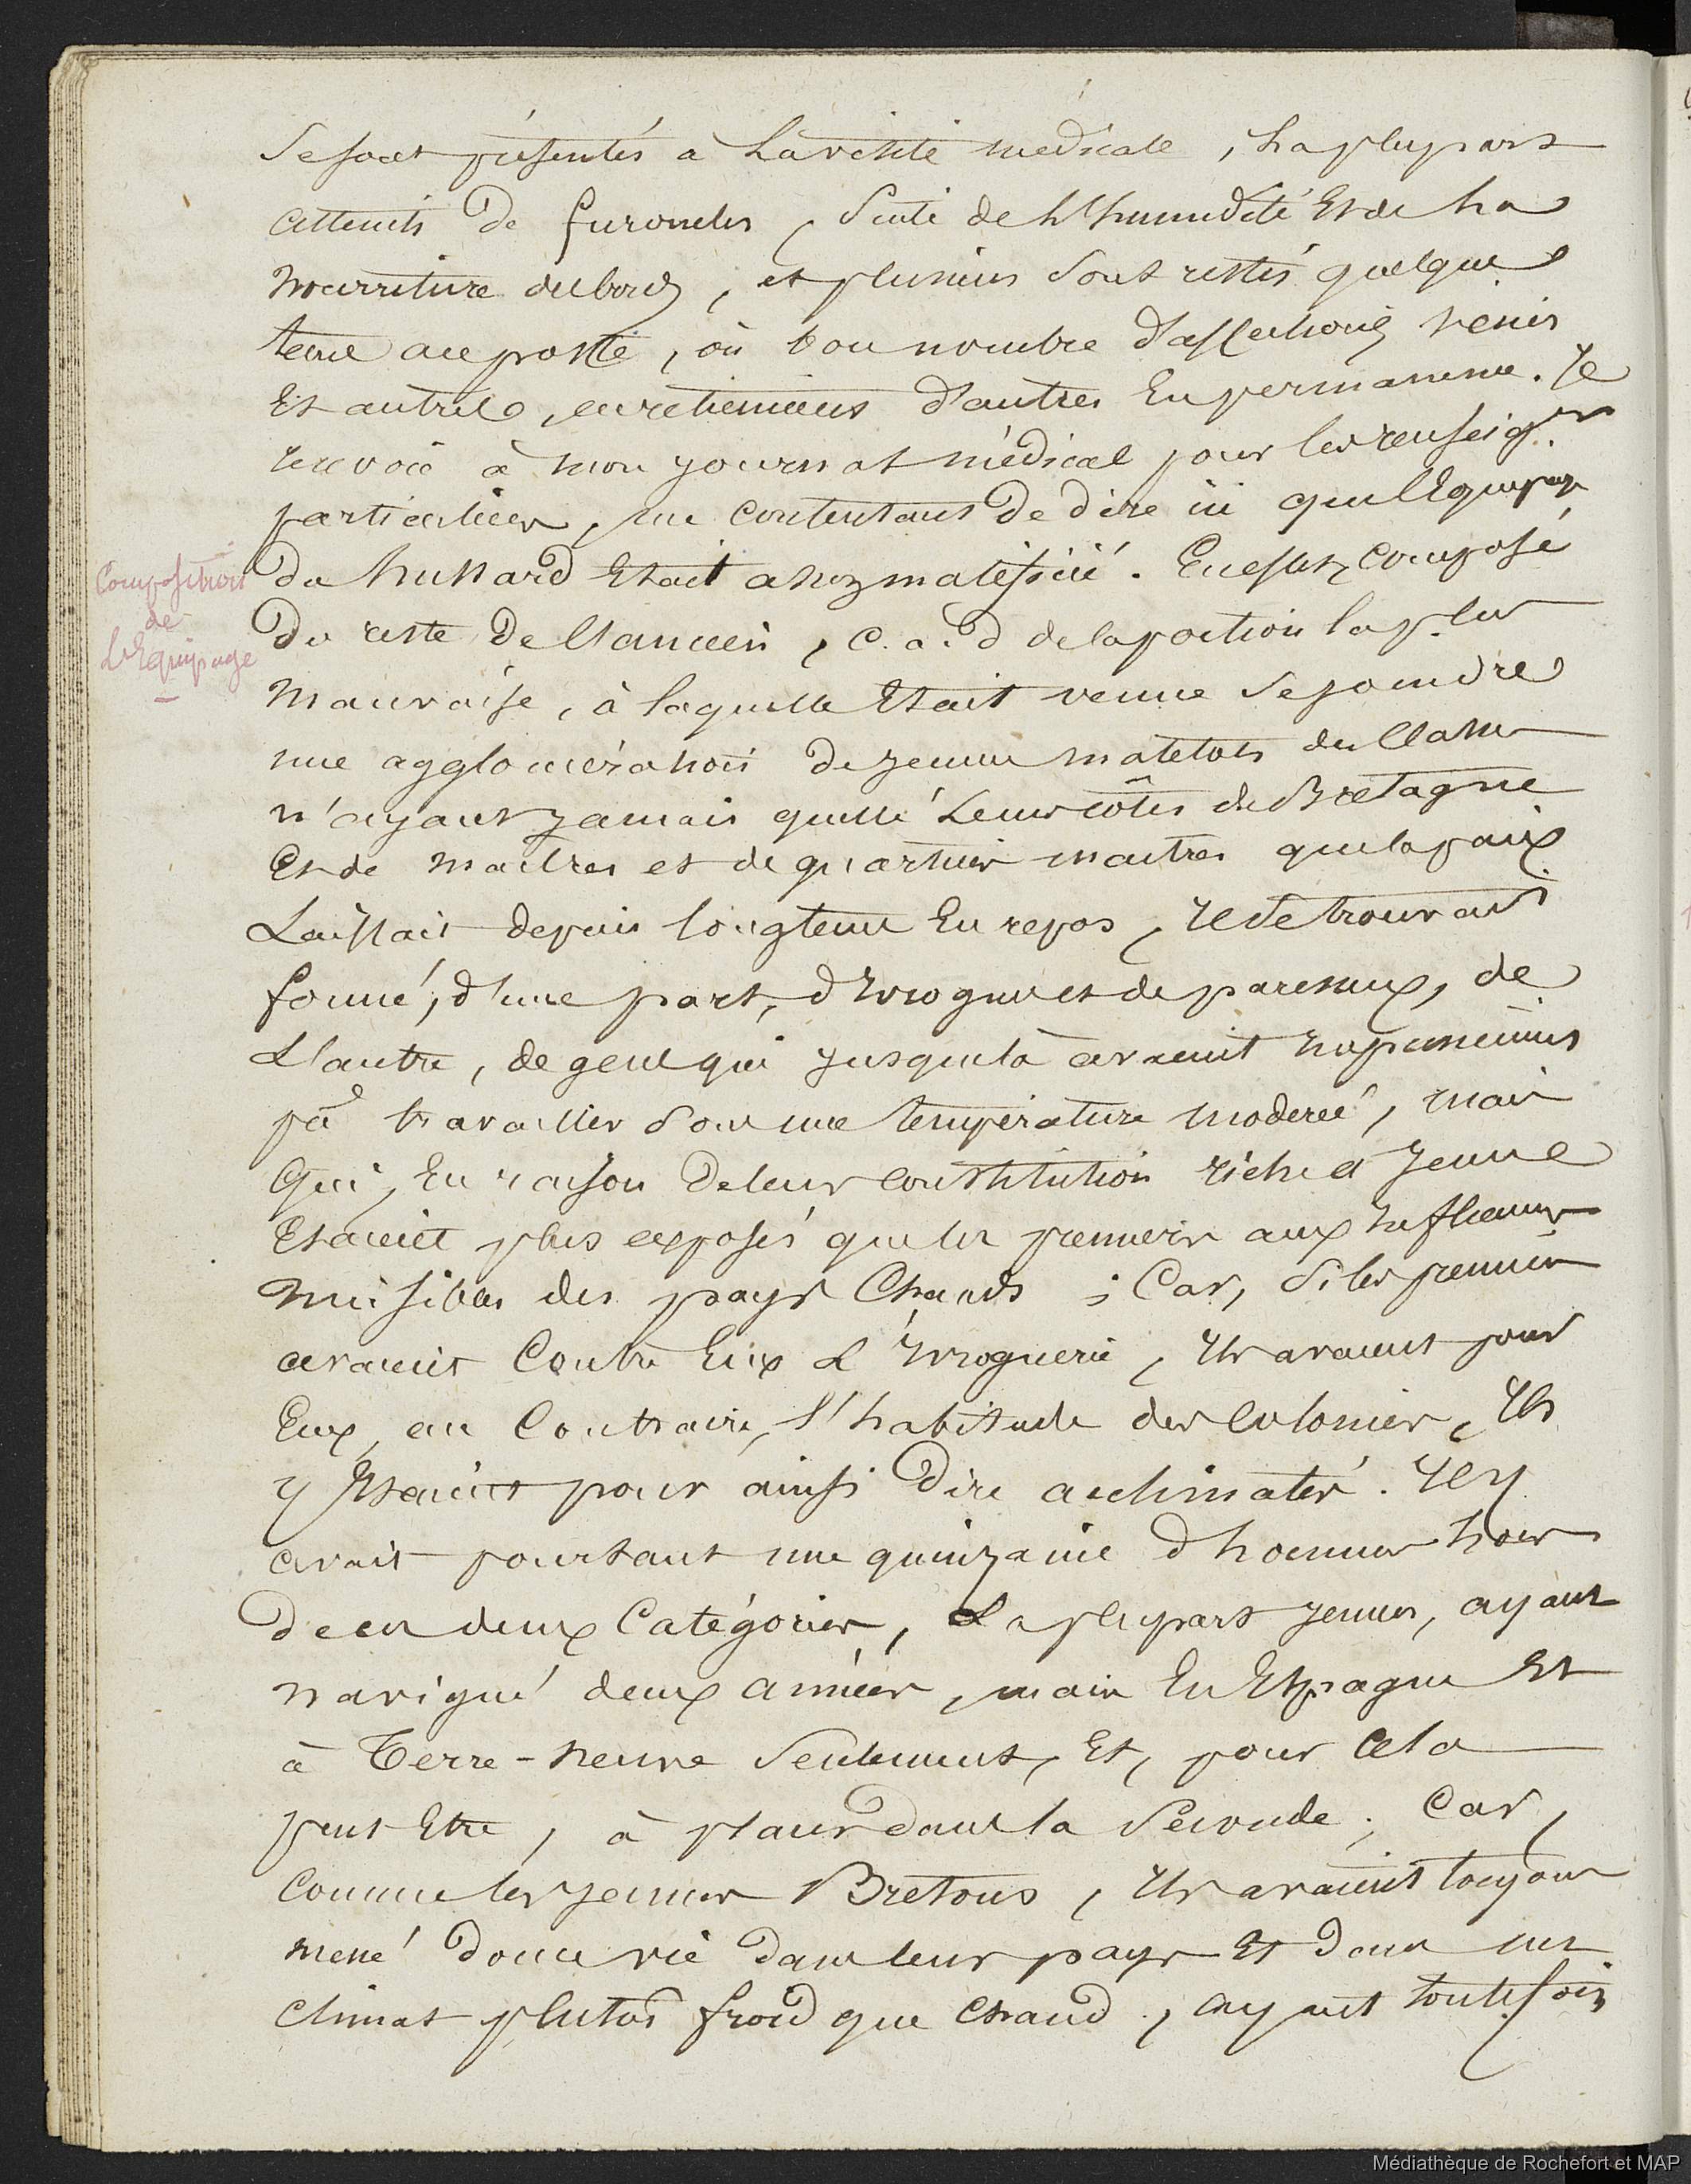 Se sont présentés à La visite médicale, La plupart
atteints de furoncles, Suite de L'humidité Et de La
Nourriture du bord, et plusieurs sont restés quelque
tems au poste, où bon nombre d'affections vénér.
Et autres, en retenaient d'autres En permanence. Je
renvoie à mon journal médical pour les renseig.nts
particuliers, me contentant De dire ici que l'Equipage
Composition
de
L'Equipage
Du hussard Etait assez mal épicé. En effet, composé
Du reste De l'ancien, c.a.d de la portion la plus
Mauvaise, à laquelle Etait venue Se joindre
une agglomération De jeunes matelots de classe
n'ayant jamais quitté Leurs côtes de Bretagne
Et de maîtres et de quartier maitres que la paix
Laissait depuis longtems En repos, Il Se trouvait
formé, d'une part, d'Ivrognes et de paresseux, de
L'autre, de gens qui jusque là avaient
pû travailler Sous une température moderée, mais
Qui, En raison De leur constitution riche et jeune
Etaient plus exposés que les premiers aux Influences
nuisibles des pays Chauds ; Car, Si les premiers
avaient Contre Eux L'Ivrognerie, Ils avaient pour
Eux, au Contraire, l'habitude des Colonies, Ils
y Etaient pour ainsi Dire acclimatés. Il y
avait pourtant une quinzaine d'hommes hors
De ces deux Catégories, La plupart jeunes, ayant
navigué deux années, mais En Espagne Et
à Terre-neuve Seulement, Et, pour Cela
peut Etre, à placer dans la Seconde ; Car,
Comme les jeunes Bretons, Ils avaient toujours
mené douce vie Dans leur pays Et Dans un
climat plutôt froid que Chaud, ayant toutefois
Médiathèque de Rochefort et MAP